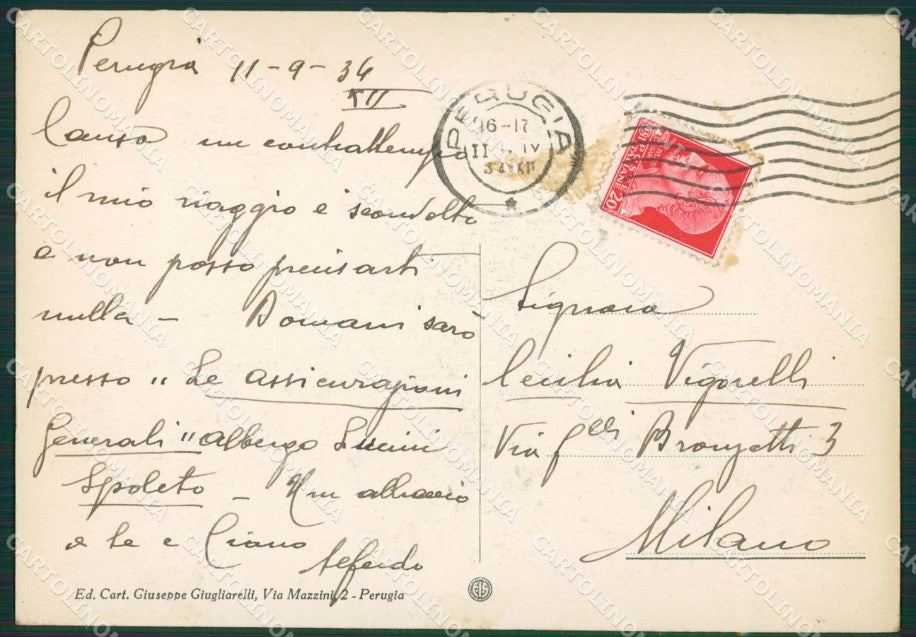 Perugia 11-9-34
XII
Causa un contrattempo
il mio viaggio è
e non posso precisarti
nulla - Domani sarò
presso " Le assicurazioni
Generali " albergo
Spoleto - Un abbraccio
a te e
PERUGIA
16-17
20
Signora
Cecilia Vigorelli
Via F.lli Bronzetti 3
Milano
Ed. Cart. Giuseppe Giugliarelli, Via Mazzini, 2 - Perugia
CARTOLINOMANIA